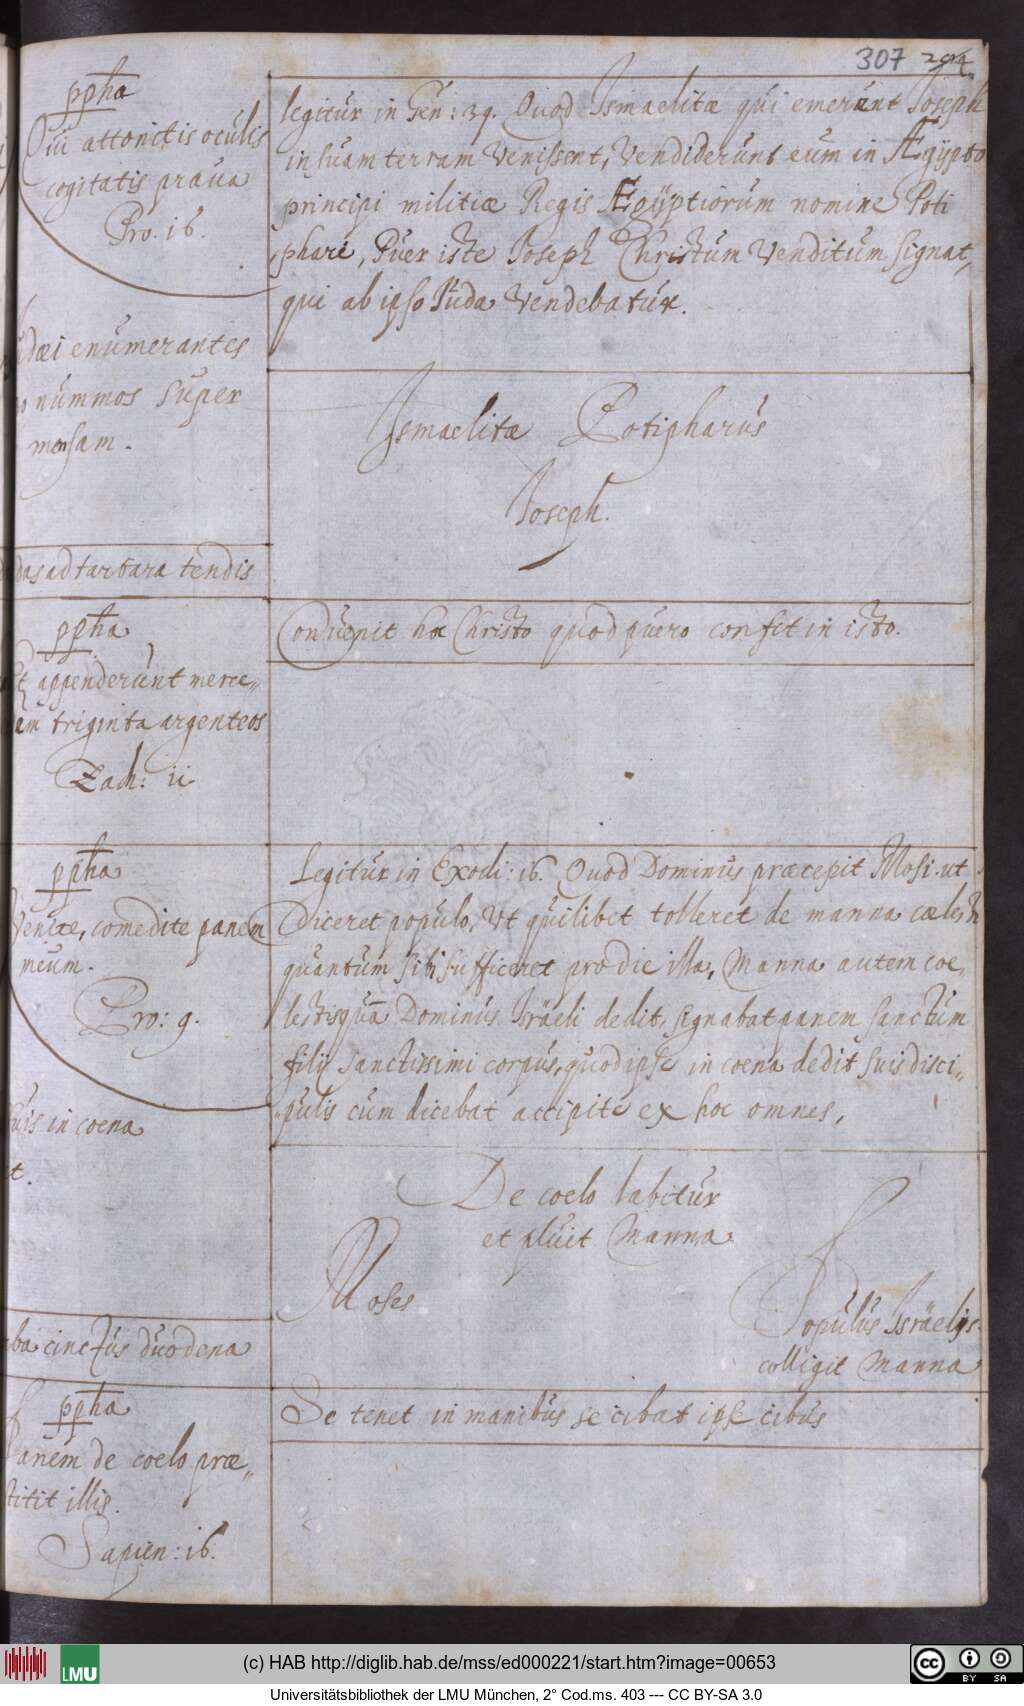 307
ppha
Qui attonitis oculis
cogitatis praua
Pro. 16.
enumerantes
nummos super
mensam.
ad tartara tendis
ppha
appenderunt merce„
triginta argenteos
Zach: 11
ppha
Venite, comedite panem
meum.
Pro: 9.
in coena
cinctus duodena
ppha
Panem de coelo præ„
titit illis.
Sapien: 16.
legitur in Gen: 39. Quod Ismaelitæ qui emerunt Joseph
in suam terram Venissent, Vendiderunt eum in Ægÿpto
principi militiæ Regis Ægÿptiorum nomine Poti
phari, Puer iste Joseph Christum Venditum signat,
qui ab ipso Juda Vendebatur.
Ismaelitæ Potipharus
Joseph.
Conuenit hoc Christo quod puero confit in isto.
Legitur in Exodi: 16. Quod Dominus præcepit Mosi. ut
Diceret populo, Vt quilibet tolleret de manna
quantum sibi sufficeret pro die illa, Manna autem coe„
lestis qua Dominus Israëli dedit, signabat panem sanctum
filij sanctissimi corpus, quod ipse in coena dedit suis disci„
pulis cum dicebat accipite ex hoc omnes,
De coelo labitur
et pluit Manna
Moses
Populus Israëlis
colligit Manna
Se tenet in manibus se cibat ipse cibus
LMU
(c) HAB http://diglib.hab.de/mss/ed000221/start.htm?image=00653
Universitätsbibliothek der LMU München, 2° Cod.ms. 403 --- CC BY-SA 3.0
cc BY SA